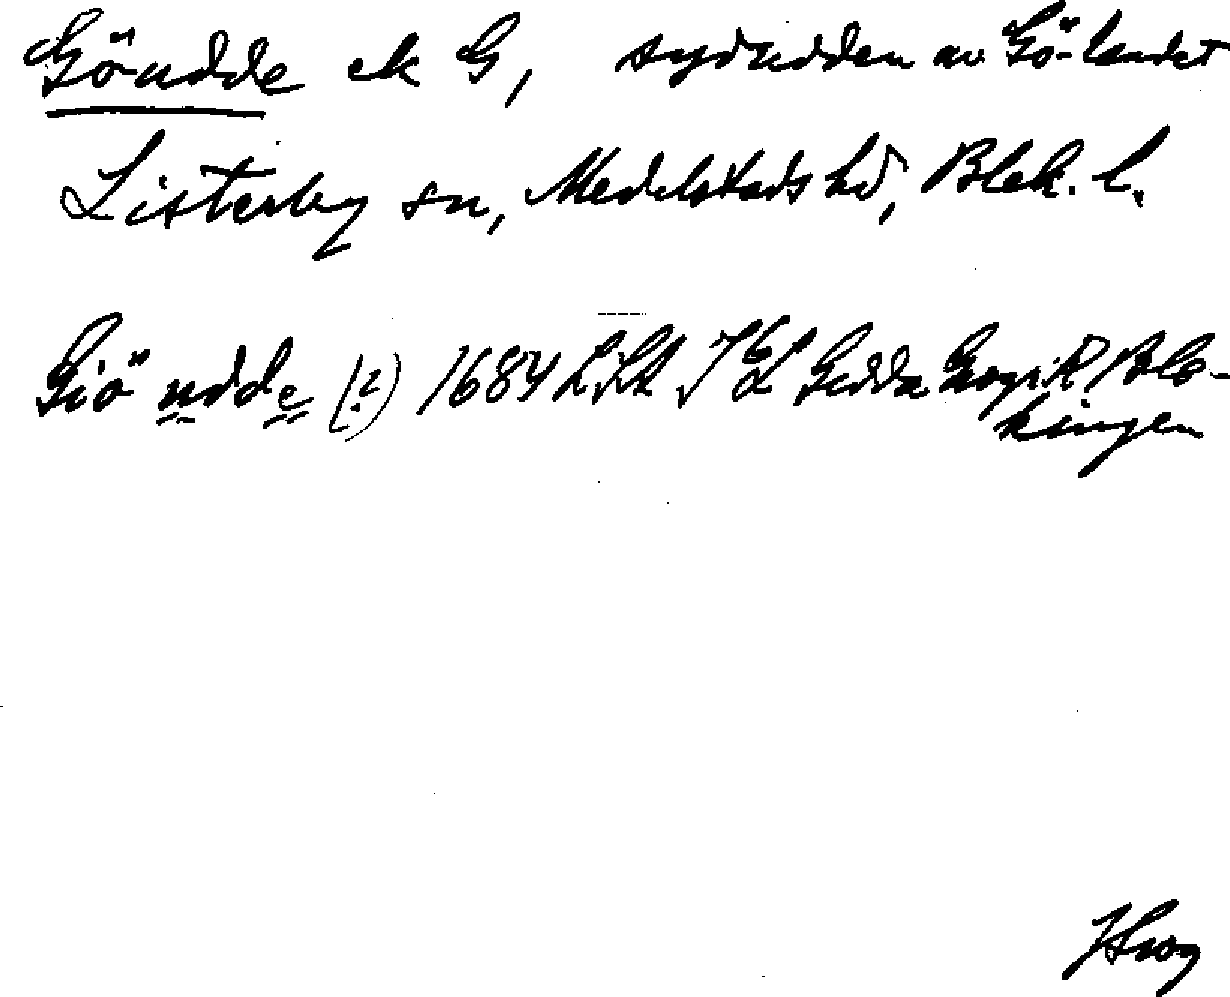 Göudde ek G, sydudden av Gö-landet
Listerby sn, Medelstads hd, Blek. l.
Giö udde (?) 1684 Gedda Blekingen